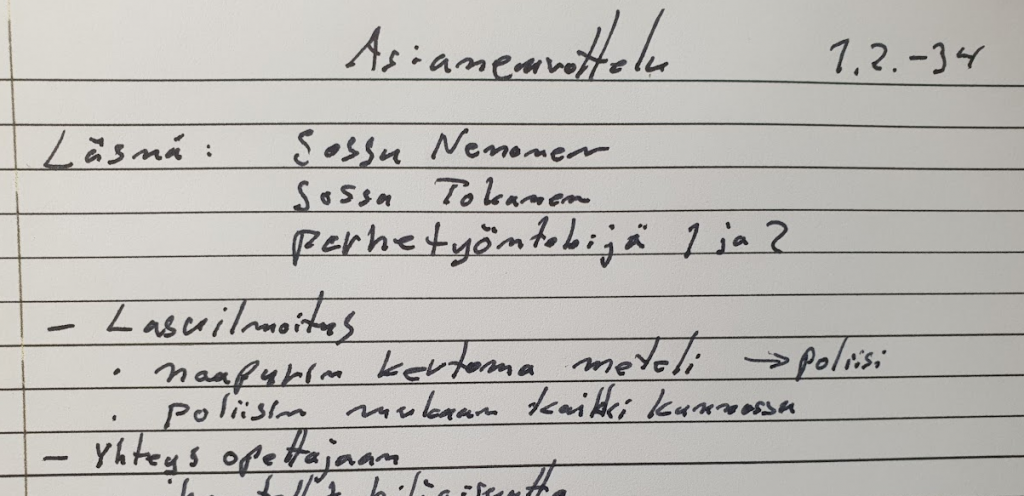 Asianemvottelu 1.2.-34
Läsnä: Sossu Nenonen
Sossu Tokanen
perhetyöntekijä 1 ja 2
- Lasuilmoitus
· naapurin kertoma meteli → poliisi
· poliisin mukaan kaikki kunnossa
- Yhteys opettajaan
hiljaisuutta